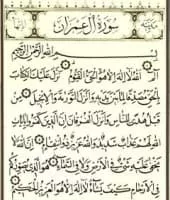 سُورَةُ آلِ عِمْرَانَ
بِسْمِ اللهِ الرَّحْمٰنِ الرَّحِيمِ
الٓمٓ اللهُ لَا إِلٰهَ إِلَّا هُوَ الْحَيُّ الْقَيُّومُ نَزَّلَ عَلَيْكَ الْكِتَابَ
بِالْحَقِّ مُصَدِّقًا لِمَا بَيْنَ يَدَيْهِ وَأَنْزَلَ التَّوْرٰيةَ وَالْإِنْجِيلَ مِنْ
قَبْلُ هُدًى لِلنَّاسِ وَأَنْزَلَ الْفُرْقَانَ إِنَّ الَّذِينَ كَفَرُوا بِآيَاتِ
اللهِ لَهُمْ عَذَابٌ شَدِيدٌ وَاللهُ عَزِيزٌ ذُو انْتِقَامٍ إِنَّ اللهَ لَا
يَخْفٰى عَلَيْهِ شَيْءٌ فِي الْأَرْضِ وَلَا فِي السَّمَاءِ هُوَ الَّذِي يُصَوِّرُكُمْ
فِي الْأَرْحَامِ كَيْفَ يَشَاءُ لَا إِلٰهَ إِلَّا هُوَ الْعَزِيزُ الْحَكِيمُ